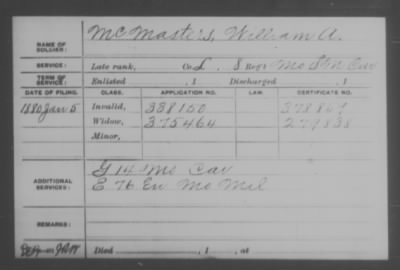 NAME OF SOLDIER: McMasters, William A.
SERVICE: Late rank, Co. L, 8 Reg't Mo S M Cav
TERM OF SERVICE: Enlisted , 1 Discharged , 1
DATE OF FILING. CLASS. APPLICATION NO. LAW. CERTIFICATE NO.
1880 Jan 5 Invalid, 338150
Widow, 375464 279838
Minor,
ADDITIONAL SERVICES: G 14 Mo Cav
E 76 En Mo Mil
REMARKS:
Died , 1 , at